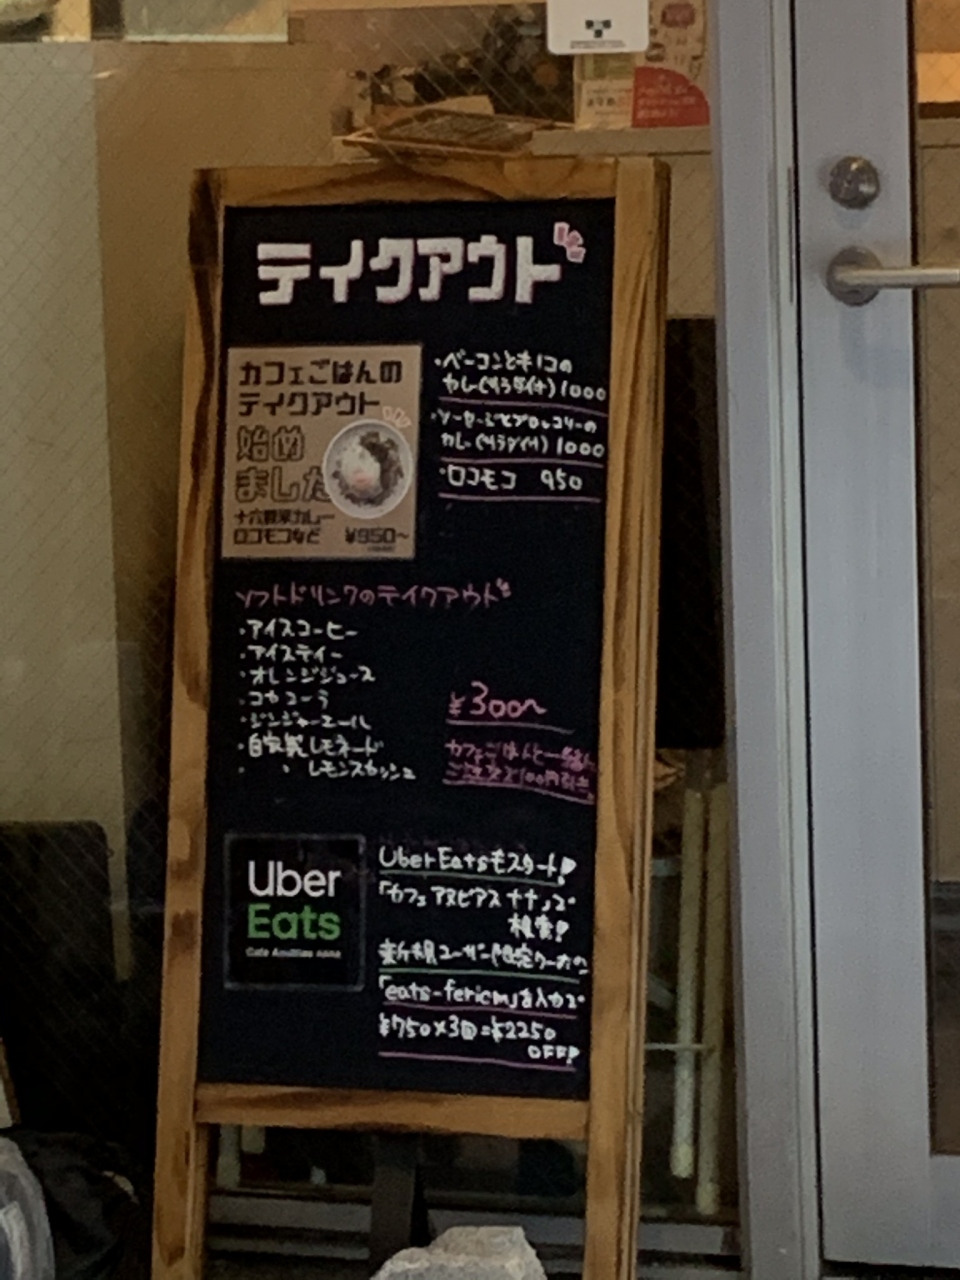 テイクアウト
カフェごはんの
テイクアウト
始め
ました
十六穀米カレー
ロコモコなど ¥950~
・ベーコンとキノコの
カレー(サラダ付)1000
・ソーセージとブロッコリーの
カレー(サラダ付)1000
・ロコモコ 950
ソフトドリンクのテイクアウト
・アイスコーヒー
・アイスティー
・オレンジジュース
・コカコーラ
・ジンジャーエール
・自家製レモネード
・ 〃 レモンスカッシュ
¥300~
カフェごはんと一緒に
ご注文で100円引き
Uber
Eats
UberEatsもスタート!
「カフェ アヌビアス ナナ」で
検索!
新規ユーザー限定クーポン
「eats-fericm」を入力で
¥750×3回=¥2250
OFF!